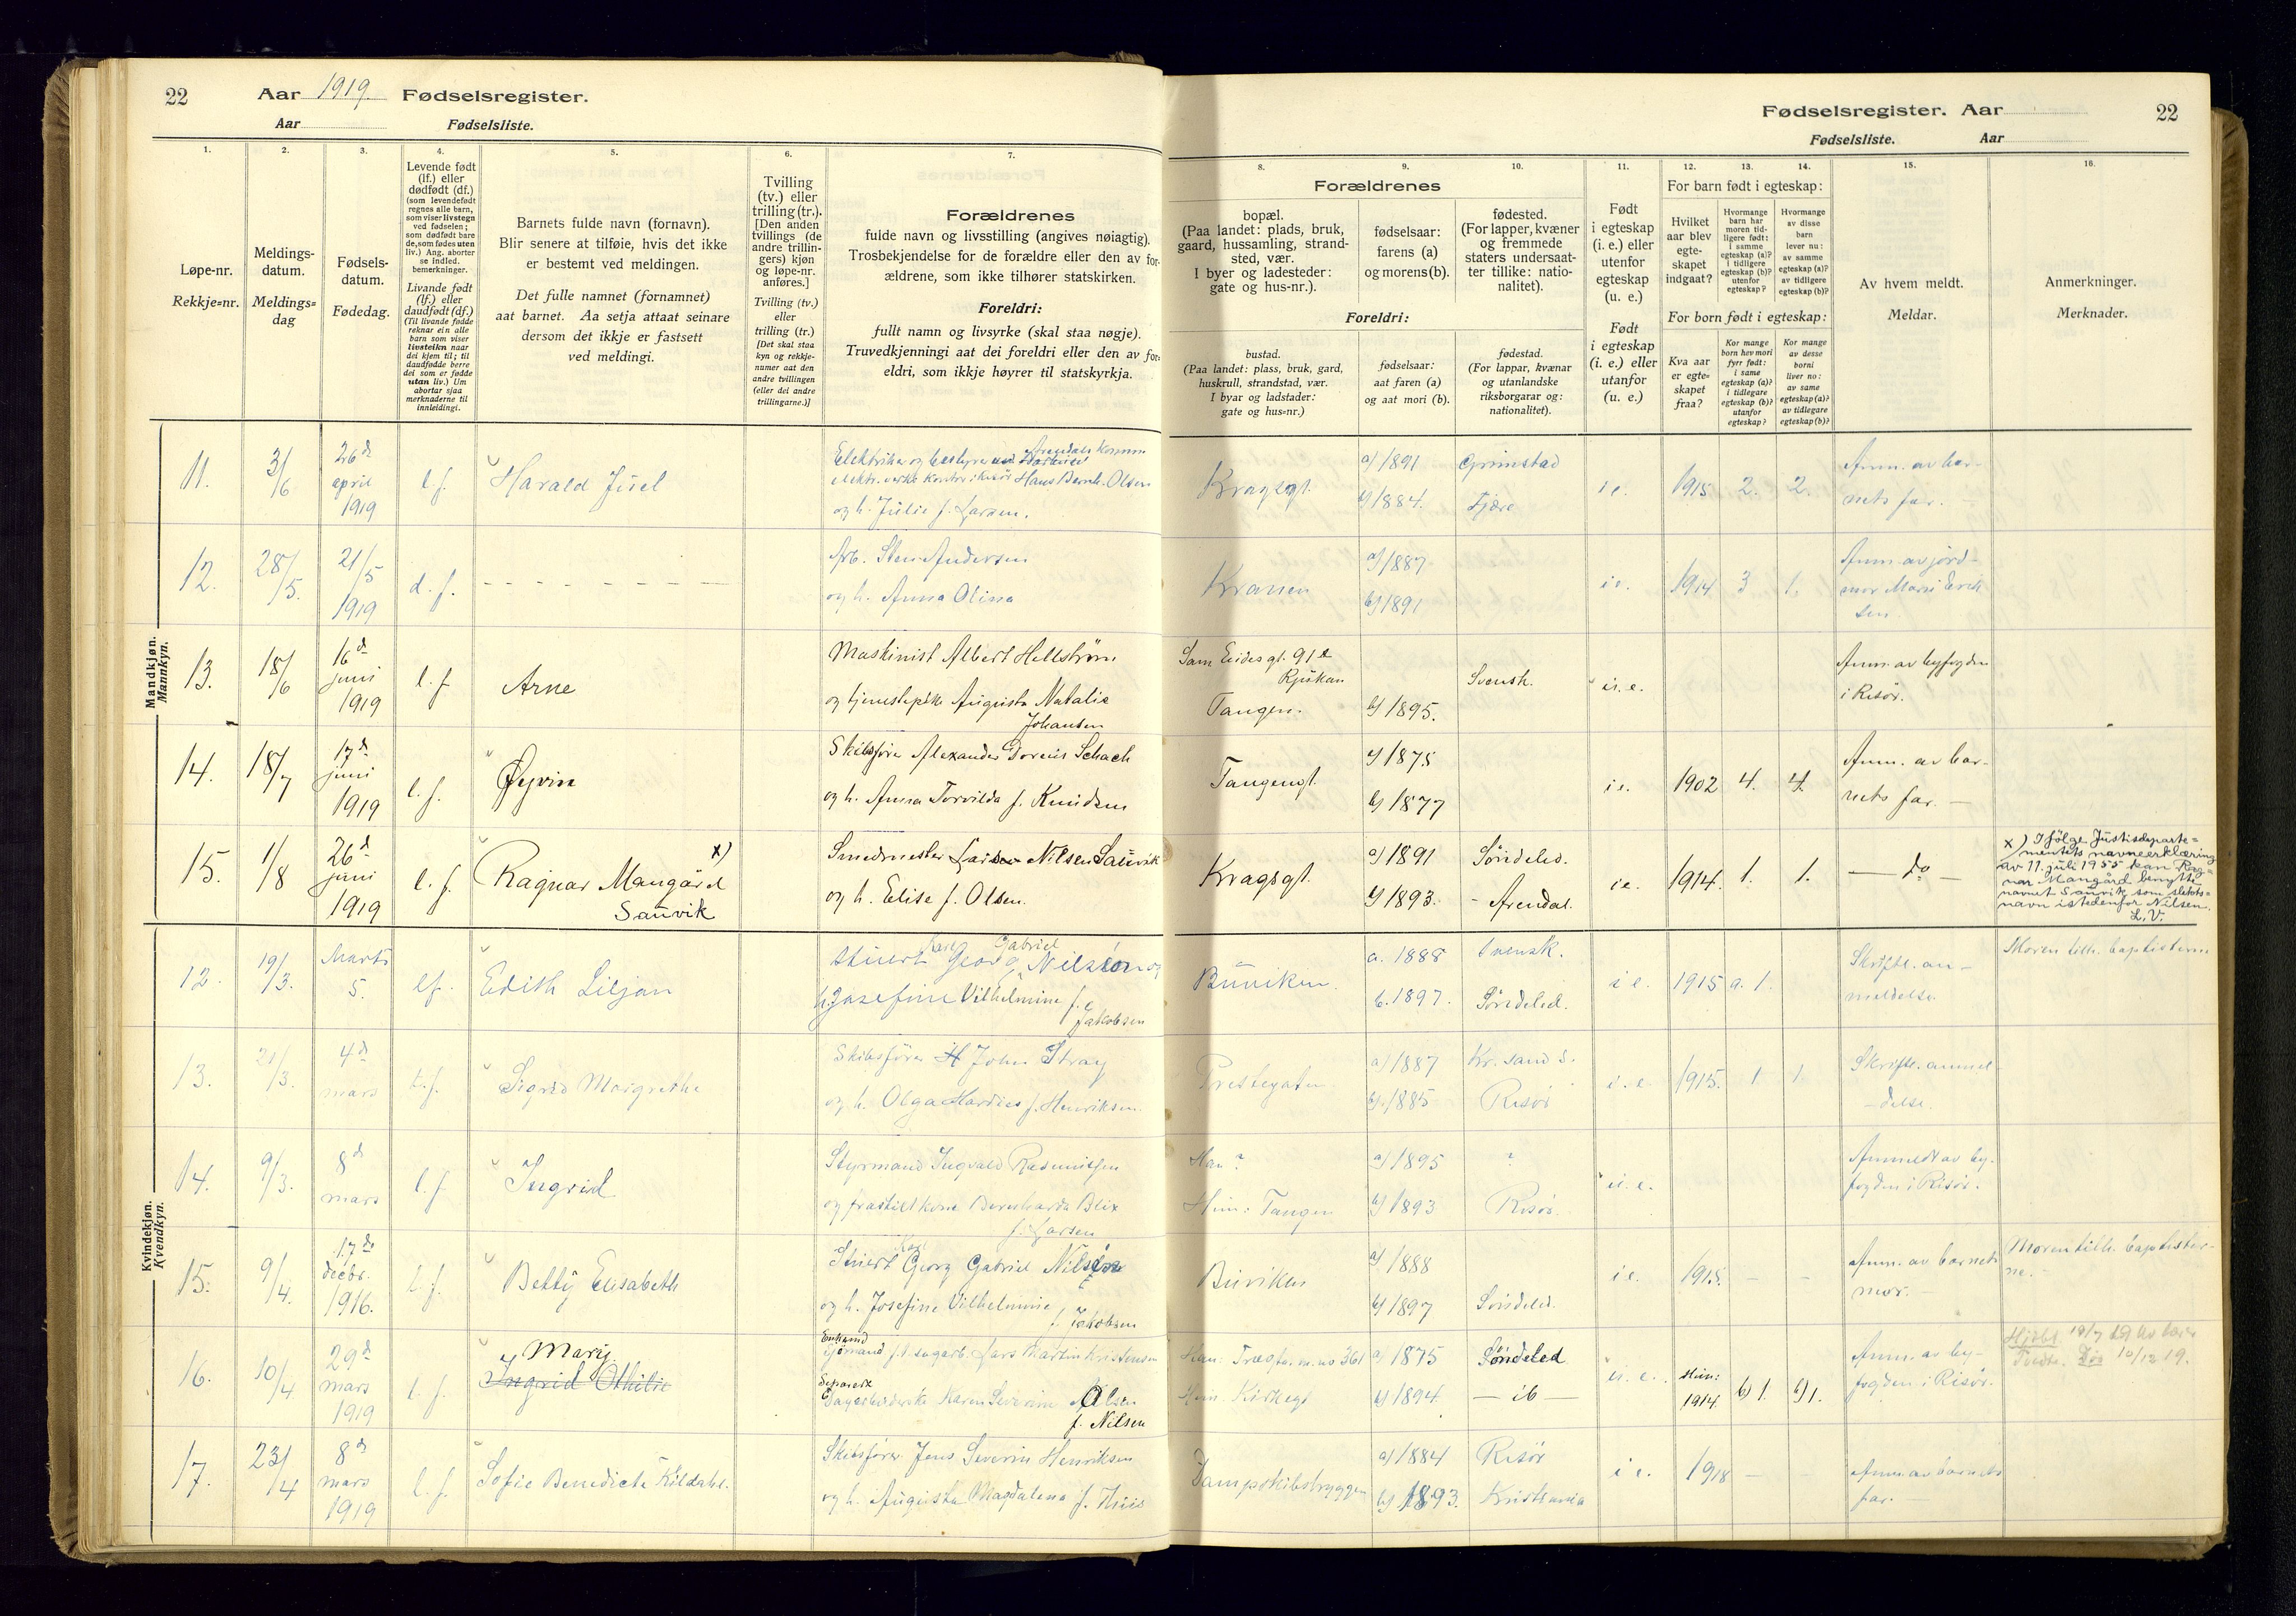 22 Aar 1919. Fødselsregister.
Aar Fødselsliste.
Fødselsregister. Aar 22
Fødselsliste. Aar
1. 2. 3. 4. 5. 6. 7. 8. 9. 10. 11. 12. 13. 14. 15. 16.
Løpe-nr.
Rekkje=nr.
Meldings-
datum.
Meldings=
dag
Fødsels-
datum.
Fødedag.
Levende født
(lf.) eller
dødfødt (df.)
(som levendefødt
regnes alle barn,
som viser livstegn
ved fødselen;
som dødfødt bare
de, som fødes uten
liv.) Ang. aborter
se indled.
bemerkninger.
Livande født
(lf.) eller
daudfødt (df.)
(Til livande fødde
reknar ein alle
barn som viser
livsteikn naar
dei kjem til; til
daudfødde berre
dei som er fødde
utan liv.) Um
abortar sjaa
merknaderne til
innleidingi.
Barnets fulde navn (fornavn).
Blir senere at tilføie, hvis det ikke
er bestemt ved meldingen.
Det fulle namnet (fornamnet)
aat barnet. Aa setja attaat seinare
dersom det ikkje er fastsett
ved meldingi.
Tvilling
(tv.) eller
trilling (tr.).
[Den anden
tvillings (de
andre trillin-
gers) kjøn
og løpe-nr.
anføres.]
Tvilling (tv.)
eller
trilling (tr.)
[Det skal staa
kyn og rekkje-
numer aat den
andre tvillingen
(eller dei andre
trillingarne.)]
Forældrenes
fulde navn og livsstilling (angives nøiagtig).
Trosbekjendelse for de forældre eller den av for-
ældrene, som ikke tilhører statskirken.
Foreldri:
fullt namn og livsyrke (skal staa nøgje).
Truvedkjenningi aat dei foreldri eller den av for-
eldri, som ikkje høyrer til statskyrkja.
Forældrenes
bopæl.
(Paa landet: plads, bruk,
gaard, hussamling, strand-
sted, vær.
I byer og ladesteder:
gate og hus-nr.).
fødselsaar:
farens (a)
og morens (b).
fødested.
(For lapper, kvæner
og fremmede
staters undersaat-
ter tillike: natio-
nalitet).
Foreldri:
bustad.
(Paa landet: plass, bruk, gard,
huskrull, strandstad, vær.
I byar og ladstader:
gate og hus=nr.)
fødselsaar:
aat faren (a)
og aat mori (b).
fødestad.
(For lappar, kvænar
og utanlandske
riksborgarar og:
nationalitet).
Født
i egteskap
(i. e.) eller
utenfor
egteskap
(u. e.)
Født
i egteskap
(i. e.) eller
utanfor
(u. e.)
For barn født i egteskap:
Hvilket
aar blev
egte-
skapet
indgaat?
Hvormange
barn har
moren tid-
ligere født:
i samme
egteskap (a)?
i tidligere
egteskap (b)?
utenfor
egteskap?
Hvormange
av disse
barn
lever nu:
av samme
egteskap (a)?
av tidligere
egteskap (b)?
For born født i egteskap:
Kva aar
er egte=
skapet
fraa?
Kor mange
born hev mori
fyrr født:
i same
egteskap (a)?
i tidlegare
egteskap (b)?
utanfor
egteskap?
Kor mange
av desse
borni
liver no:
av same
egteskap (a)?
av tidlegare
egteskap (b)?
Av hvem meldt.
Meldar.
Anmerkninger.
Merknader.
Mandkjøn.
Mannkyn.
11. 3/6 26d april 1919 l. f. Harald Juel
Elektriker og bestyrer Arendals Komm.
elektr. verks kontor i Risør Hans Bernh. Olsen
og h. Julie f. Larsen.
Kragsgt. a) 1891 Grimstad
b) 1884. Fjære
i e. 1915 2. 2. Anm. av bar-
nets far.
12. 28/5. 21/5 1919 d. f. - - - - - - -
Arb. Sten Andersen
og h. Anna Olina
Kranen a) 1887 b) 1891
i e. 1914 3 1. Anm. av jord-
mor Marie Erik
sen
13. 18/6 16d juni 1919 l. f. Arne
Maskinist Albert Hellström
og tjenestepike Augusta Natalie
Johansen
Sam Eidesgt. 91
Rjukan
Tangen. b) 1895. Svensk. u. e.
Anm. av byfogden
i Risør.
14. 18/7 17d juni 1919 l. f. Øyvin
Skibsfører Alexander Dorenis Schach
og h. Anna Torvilda f. Knudsen
Tangengt. a) 1875 b) 1877
i e. 1902 4. 4. Anm. av bar-
nets far. —
15. 1/8 26d juni 1919 l. f. Ragnar Mangård x)
Sauvik
Smedmester Lars Nilsen Sauvik
og h. Elise f. Olsen.
Kragsgt. a) 1891 Söndeled.
b) 1893. - Arendal.
i e. 1914. 1. 1. — do —
x) Ifölge Justisdeparte=
mentets navneerklæring
av 11. juli 1955 kan Rag=
nar Mangård benytte
navnet Sauvik som slekts=
navn istedenfor Nilsen.
L. V.
Kvindekjøn.
Kvendkyn.
12. 19/3. Marts 5. lf. Edith Liljan
Karl Gabriel
Stuert Georg Nilsén og
h. Josefine Vilhelmine f.
Jakobsen
Buviken. a. 1888 Svensk.
b. 1897. Söndeled.
i e. 1915 a. 1. Skriftl. an-
meldelse.
Moren tilh. baptisterne
13. 21/3. 4d mars l. f. Sigrid Margrethe
Skibsfører John Stray
og h. Olga Hardine f. Henriksen.
Prestegaten a) 1887 Kr. sand S.
b) 1885 Risör
i. e. 1915. 1 1 Skriftl. anmel-
delse.
14. 9/3. 8d mars l. f. Ingrid
Styrmand Ingvald Rasmussen
og fraskilt kone Bernharda Blix
f. Larsen
Han ? a) 1895 ?
Hun: Tangen b) 1893 Risör.
u. e. Anmeldt av by-
fogden i Risör.
15. 9/4. 17de decbr. 1916. l. f. Betty Elisabeth
Karl
Stuert Georg Gabriel Nilsén
og h. Josefine Vilhelmine
f. Jakobsen
Buviken a) 1888
b) 1897 Söndeled.
i e. 1915. - - Anm. av barnets
mor.
Moren tilh. baptister-
ne. -
16. 10/4 29d mars 1919 l. f. Mary
Ingrid Othilie
Enkemd
Sjömand Lars Martin Kristensen
Separert
Dagarbeiderske Karen Severine Olsen
f. Nilsen
Han: 361 a) 1875 Söndeled
Hun. Kirkegt b) 1894. — ib —
u. e. Hun: 1914 b) 1. b) 1. Anm. av by-
fogden i Risör.
Död 10/12 19.
17. 23/4 8d mars 1919 l. f. Sofie Benedicte Kildahl.
Skibsfører Jens Severin Henriksen
og h. Augusta Magdalena f. Thiis
Dampskibsbryggen a) 1884 Risör
b) 1893. Kristiania
i e. 1918 - - Anm. av barnets
far. —